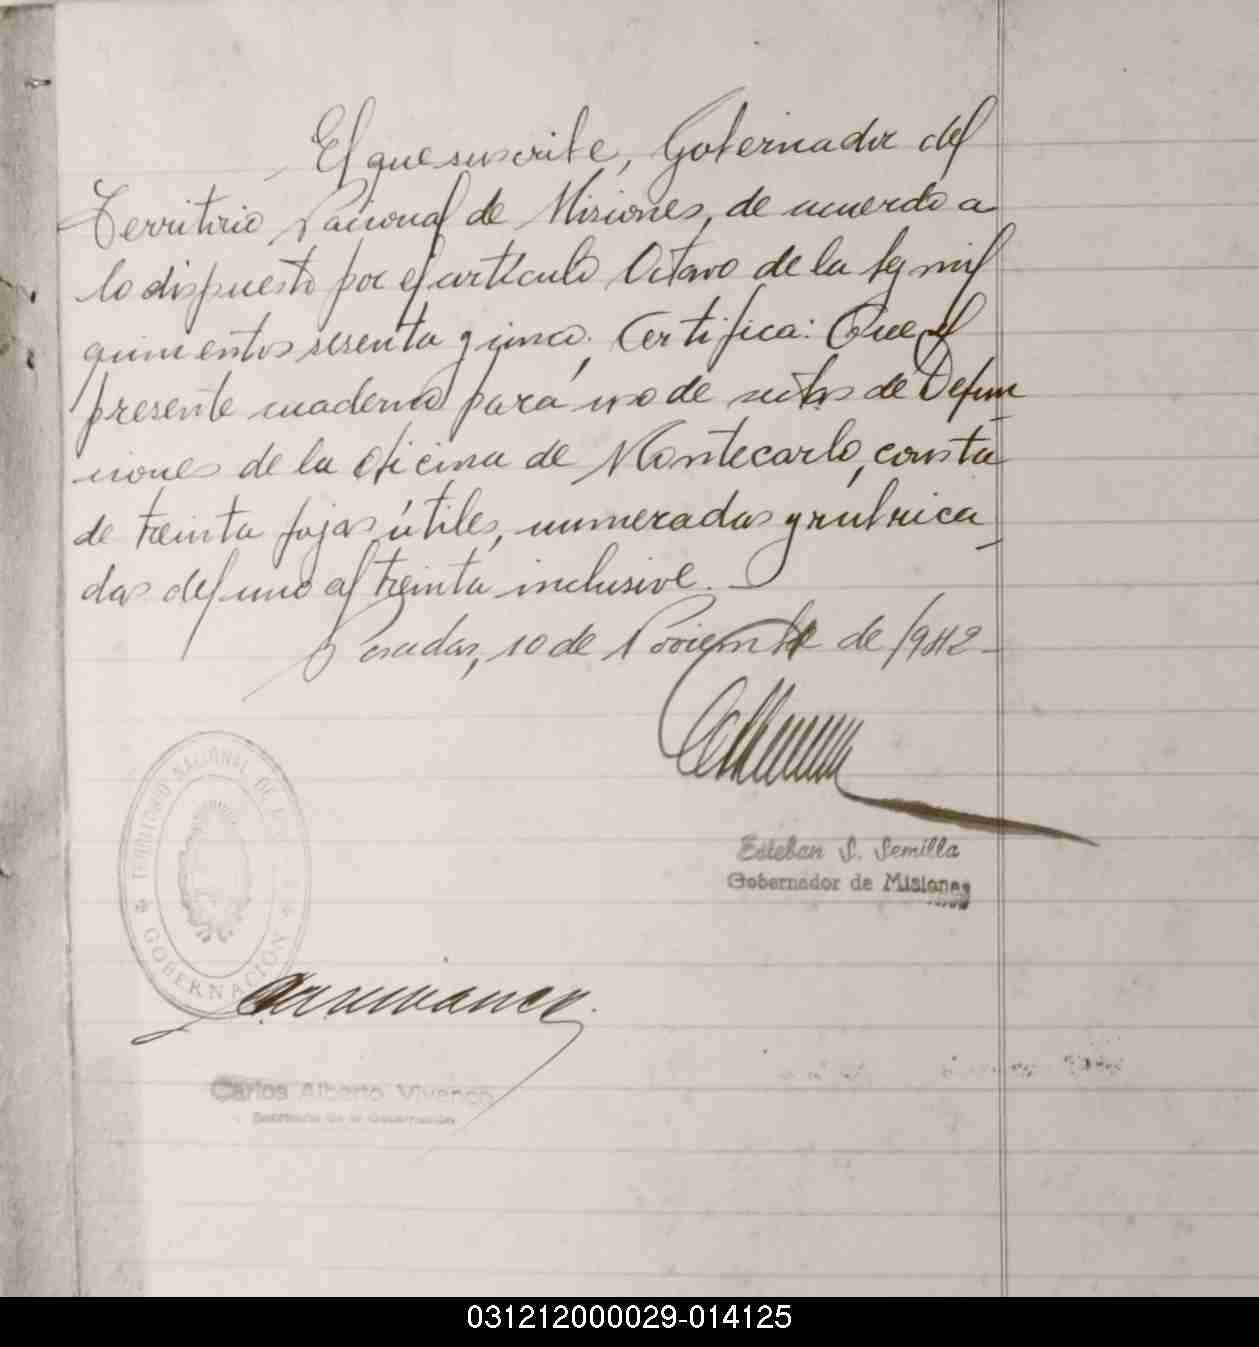 El que suscribe, Gobernador del
Territorio Nacional de Misiones, de acuerdo a
lo dispuesto por el artículo Octavo de la ley mil
quinientos sesenta y cinco, Certifica: Que el
presente cuaderno para uso de actas de Defun_
ciones de la oficina de Montecarlo, consta
de treinta fojas útiles, numeradas y rubrica_
das del uno al treinta inclusive.
Posadas, 10 de Noviembre de 1942_
TERRITORIO NACIONAL DE
GOBERNACIÓN
Esteban S. Semilla
Gobernador de Misiones
Carlos Alberto Vivanco
Secretario de la Gobernación
031212000029-014125